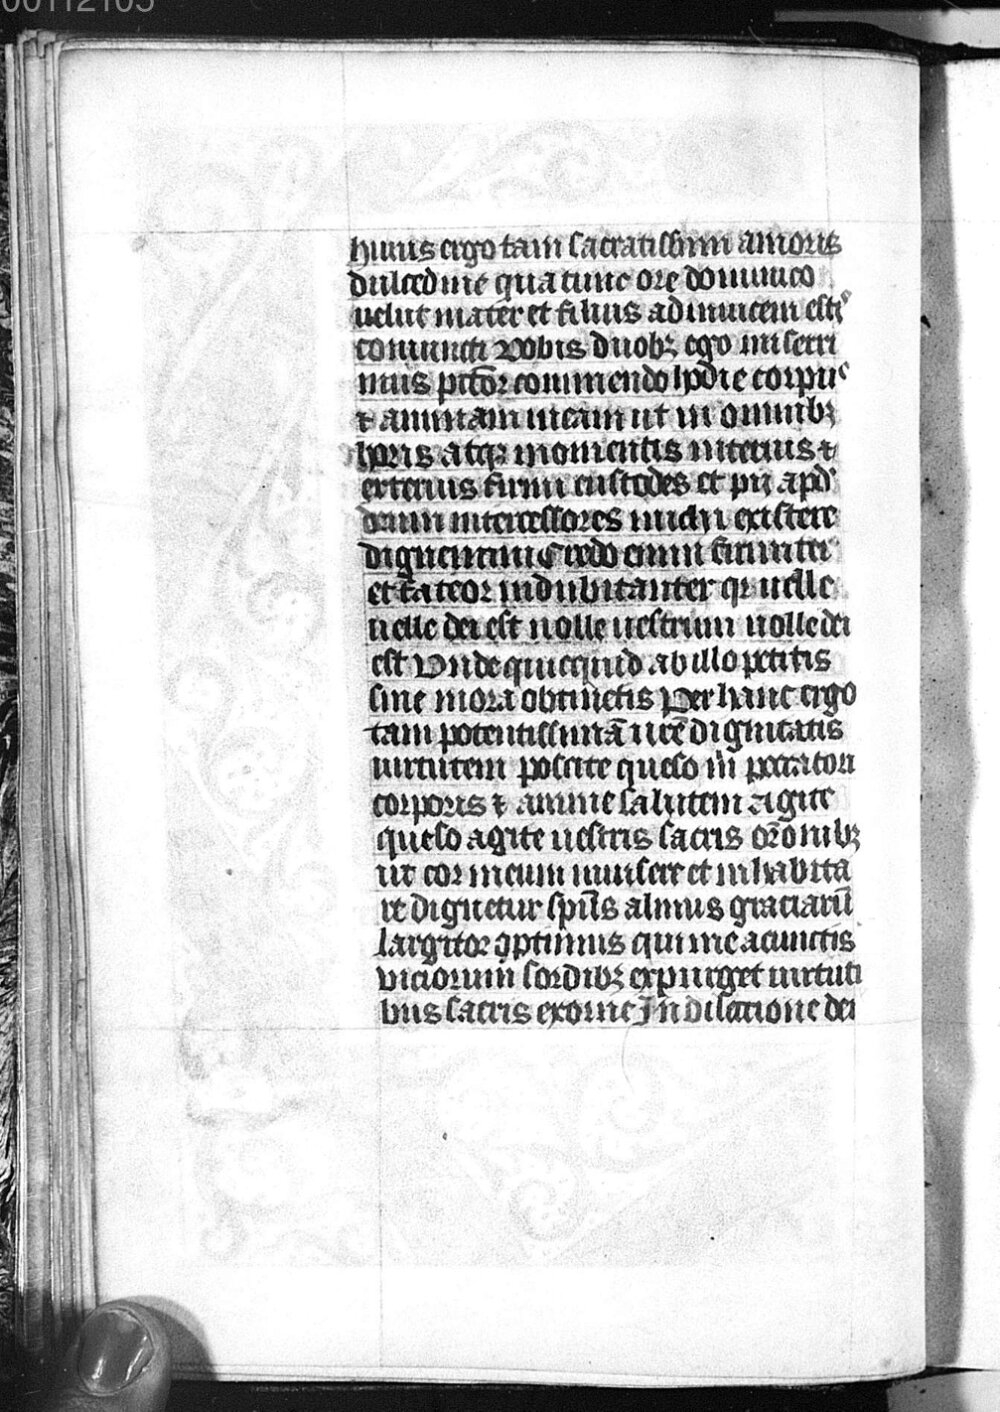 00112105
huius ergo tam sacratissimi amoris
dulcedine qua tunc ore dominico
uelut mater et filius adinuicem estis
coniuncti Vobis duobꝫ ego miserri
mus pctōr commendo hodie corpus
⁊ animam meam ut in omnibꝫ
horis atqꝫ momentis interius ⁊
exterius firmi custodes et pij apd
deum intercessores michi existere
dignemini Credo enim firmiter
et fateor indubitanter qꝛ uelle
uelle dei est nolle uestrum nolle dei
est Unde quicquid ab illo petitis
sine mora obtinetis Per hanc ergo
tam potentissimā ur̄e dignitatis
uirtutem poscite queso m̄ peccatori
corporis ⁊ anime salutem Agite
queso agite uestris sacris or̄onibꝫ
ut cor meum inuisere et inhabita
re dignetur spūs almus graciarū
largitor optimus qui me a cunctis
viciorum sordibꝫ expurget uirtuti
bus sacris exornet In dilectione dei